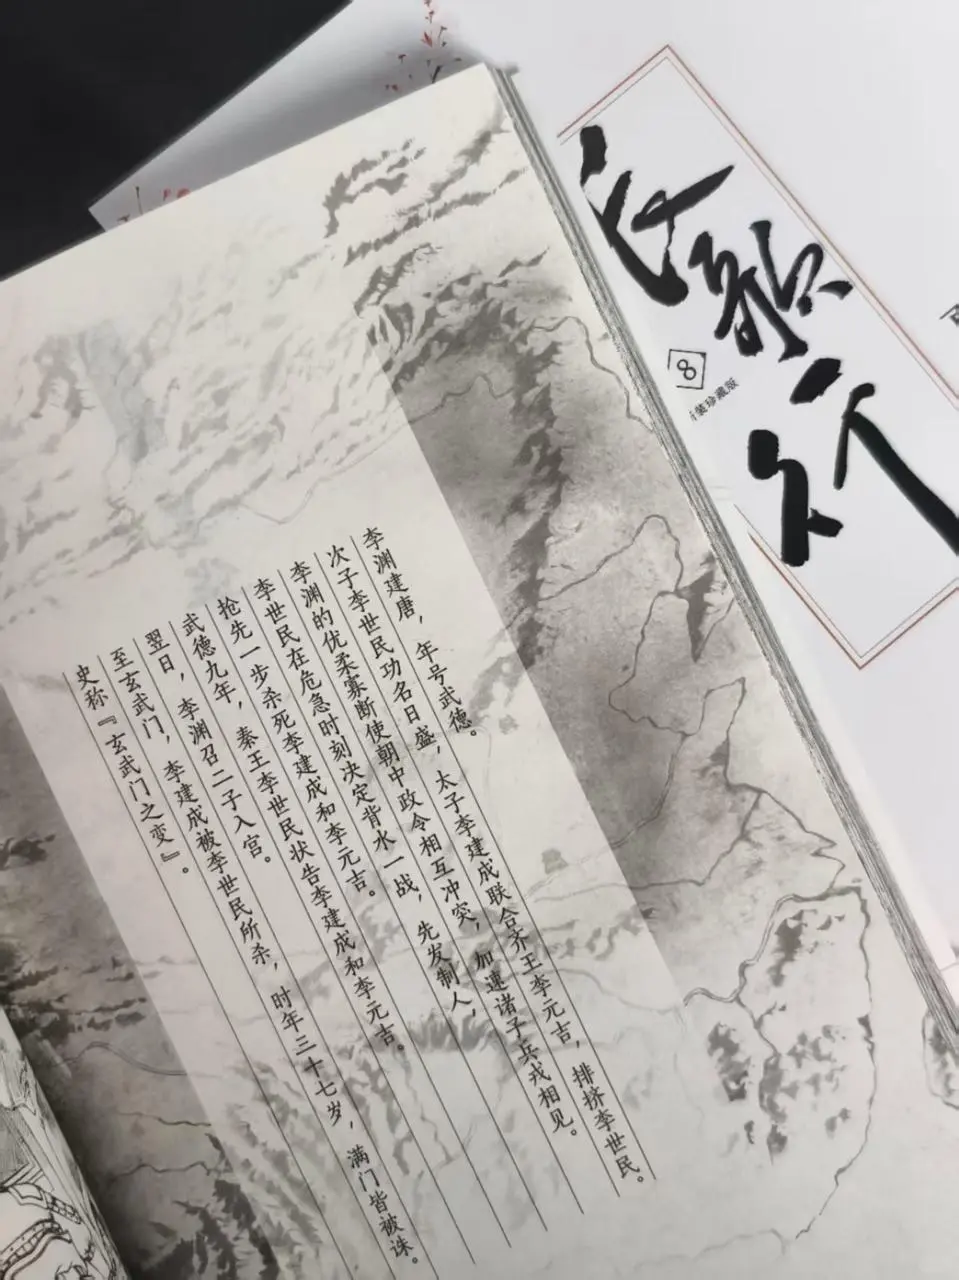 长歌行
8
装珍藏版
李渊建唐，年号武德。
次子李世民功名日盛，太子李建成联合齐王李元吉，排挤李世民。
李渊的优柔寡断使朝中政令相互冲突，加速诸子兵戎相见。
李世民在危急时刻决定背水一战，先发制人，
抢先一步杀死李建成和李元吉。
武德九年，秦王李世民状告李建成和李元吉。
翌日，李渊召二子入宫。
至玄武门，李建成被李世民所杀，时年三十七岁，满门皆被诛。
史称『玄武门之变』。